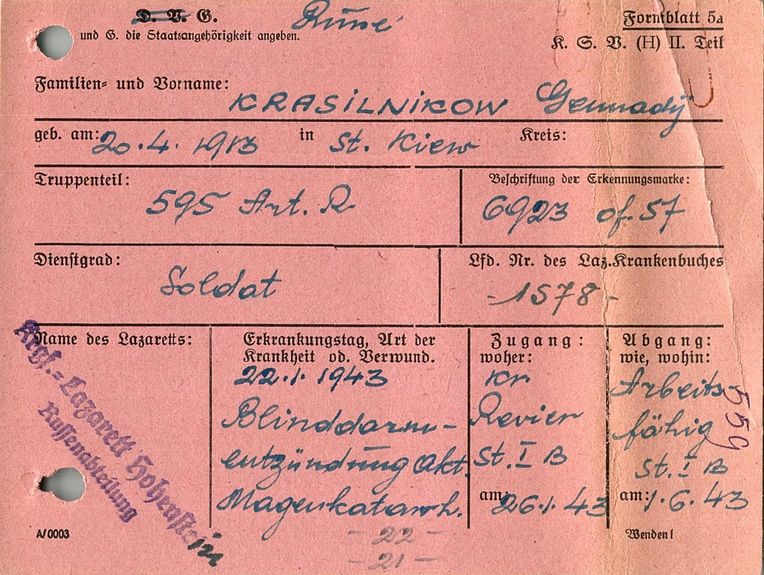 D. V. G. Russe
und G. die Staatsangehörigkeit angeben.
Formblatt 5a
K. S. V. (H) II. Teil
Familien- und Vorname:
KRASILNIKOW Gennadij
geb. am: 20.4.1913 in St. Kiew Kreis:
Truppenteil:
595 Art. R
Beschriftung der Erkennungsmarke:
6923 of 57
Dienstgrad:
Soldat
Lfd. Nr. des Laz.Krankenbuches
-1578-
Name des Lazaretts:
Krgf.-Lazarett Hohenstein
Russenabteilung
Erkrankungstag, Art der
Krankheit od. Verwund.
22.1.1943
Blinddarm-
entzündung Akt.
Magenkatarrh.
Zugang:
woher:
Kr
Revier
St. I B
am: 26.1.43
Abgang:
wie, wohin:
Arbeits
fähig
St. I B
am: 1.6.43
559
A/0003
- 22 -
- 21 -
Wenden!